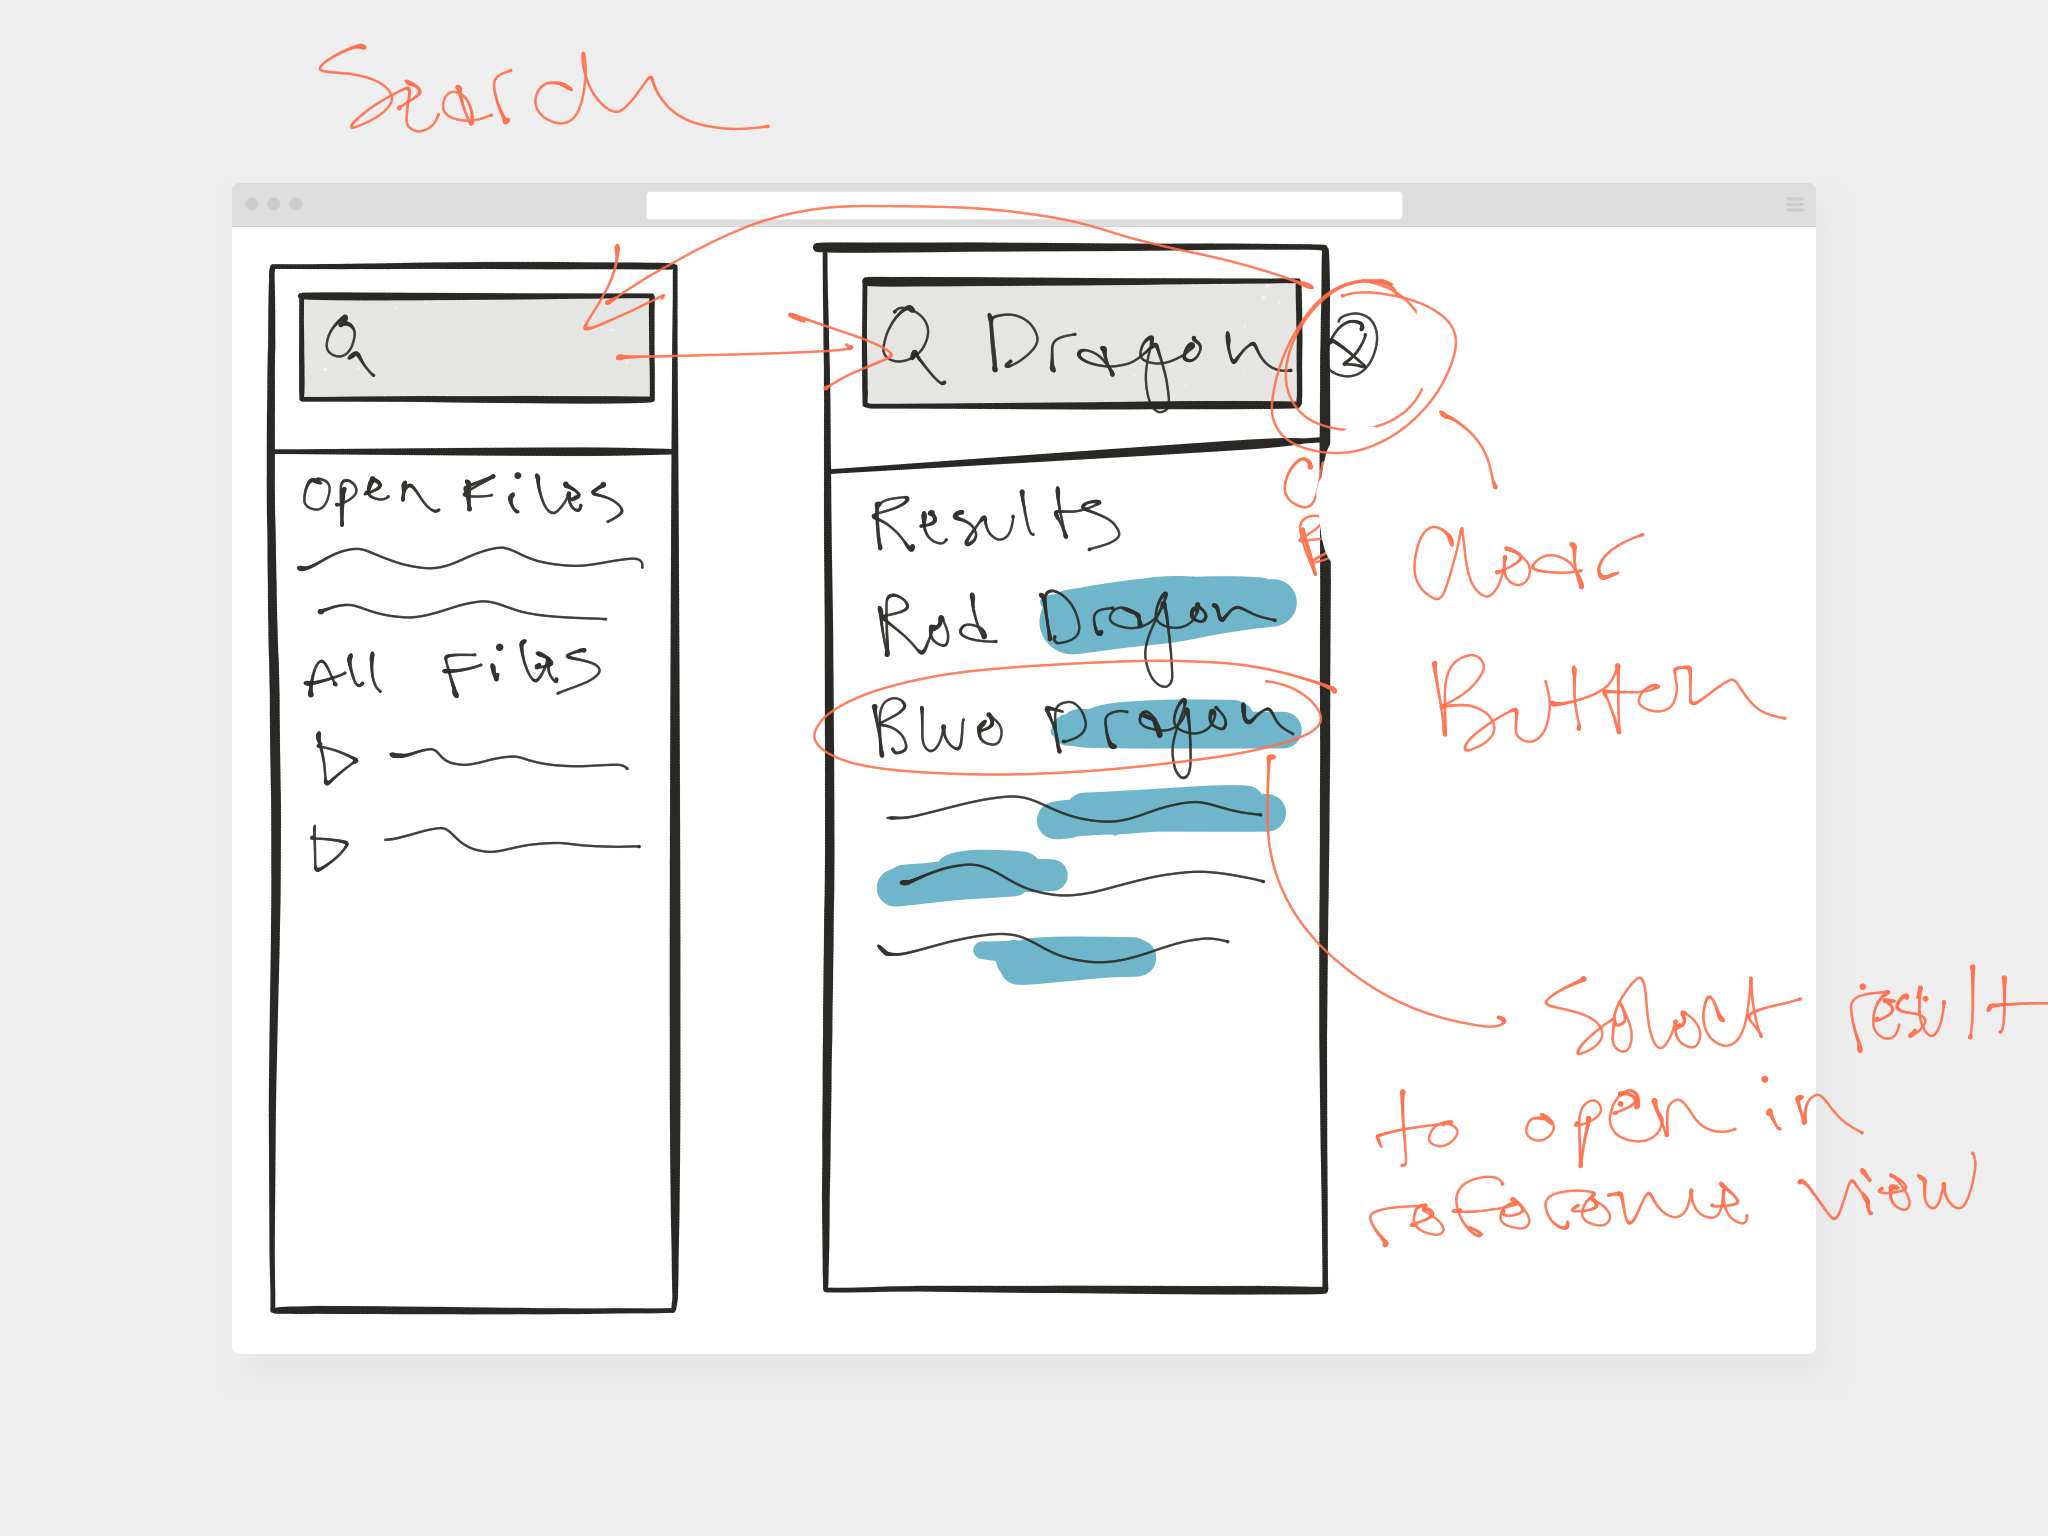 Search
Open Files
All Files
Dragon
Results
Red Dragon
Blue Dragon
Clear
Button
Select result
to open in
reference view